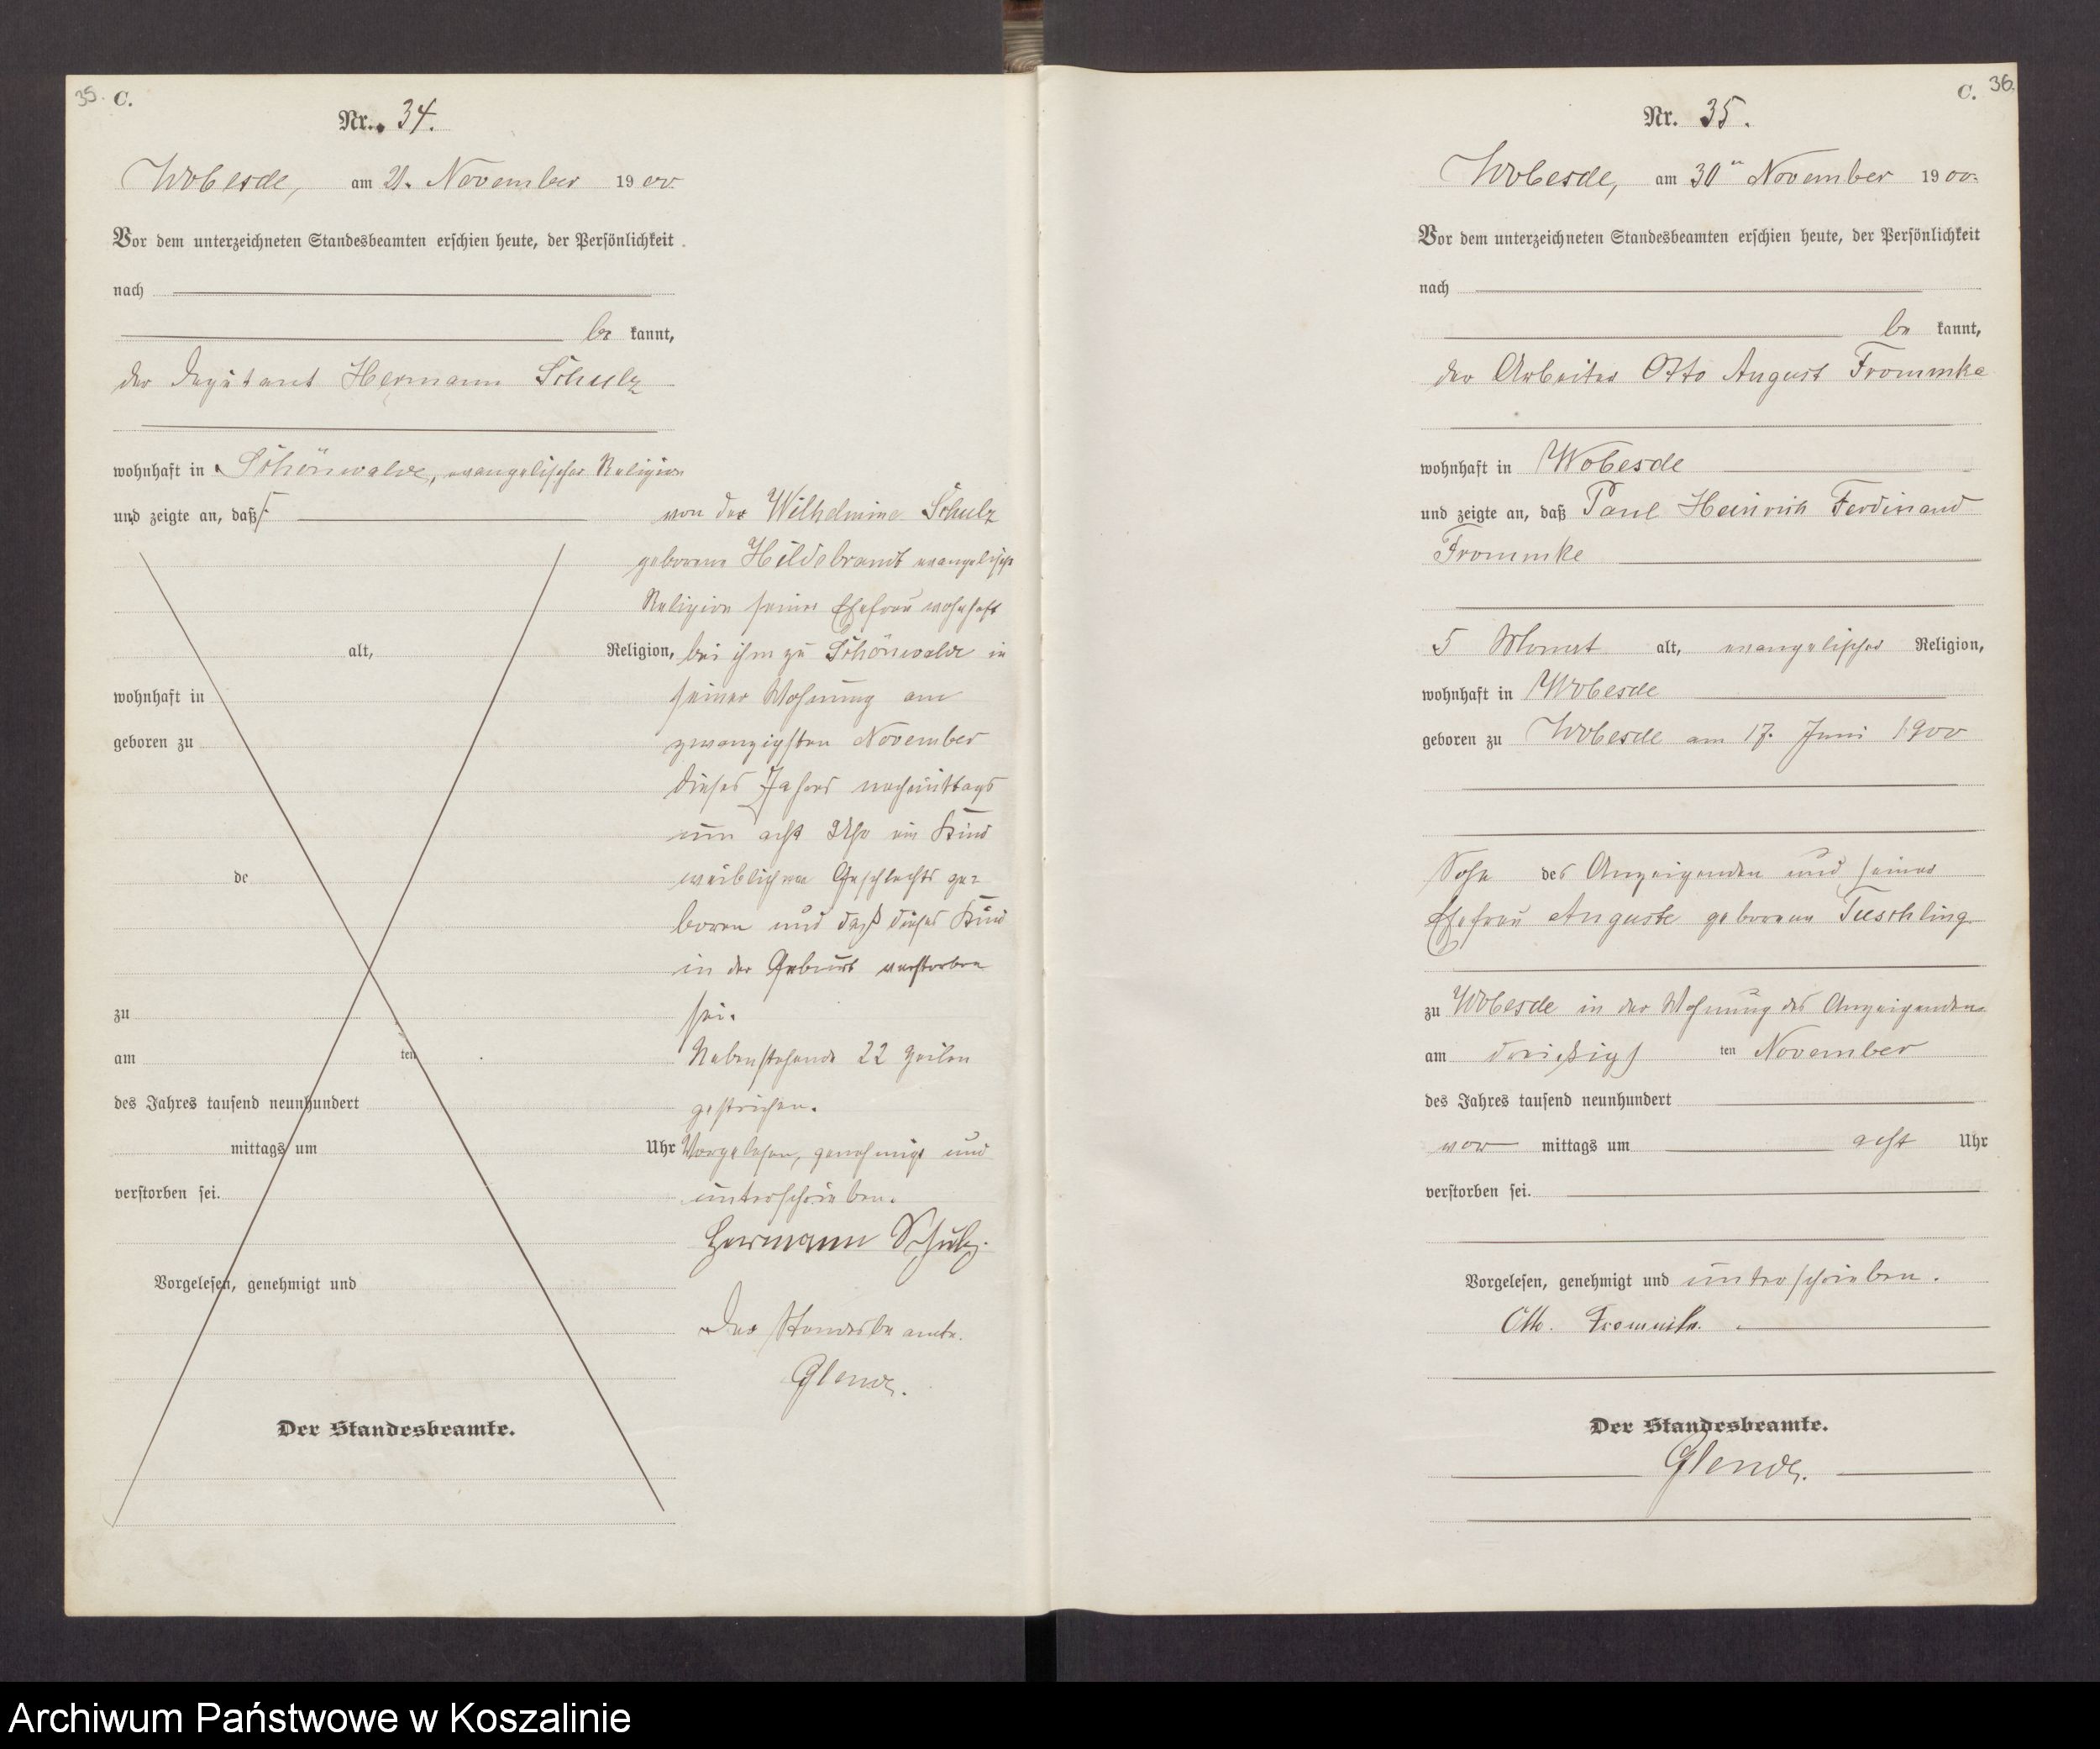 35. C.
Nr. 34.
Wobesde, am 21. November 1900.
Vor dem unterzeichneten Standesbeamten erschien heute, der Persönlichkeit
nach
be kannt,
der Deputant Hermann Schulz
wohnhaft in Schönwalde, evangelischer Religion
und zeigte an, daß
von der Wilhelmine Schulz
geborene Hildebrandt evangelischer
Religion seiner Ehefrau wohnhaft
alt, Religion, bei ihm zu Schönwalde in
wohnhaft in seiner Wohnung am
geboren zu zwanzigsten November
dieses Jahres nachmittags
um acht Uhr ein Kind
de weiblichen Geschlechts ge-
boren und daß dieses Kind
in der Geburt verstorben
zu sei.
am ten Nebenstehende 22 Zeilen
des Jahres tausend neunhundert gestrichen.
mittags um Uhr Vorgelesen, genehmigt und
verstorben sei. unterschrieben.
Hermann Schulz.
Vorgelesen, genehmigt und
Der Standesbeamte.
Glende.
Der Standesbeamte.
C. 36.
Nr. 35.
Wobesde, am 30ten November 1900.
Vor dem unterzeichneten Standesbeamten erschien heute, der Persönlichkeit
nach
be kannt,
der Arbeiter Otto August Frommke
wohnhaft in Wobesde
und zeigte an, daß Paul Heinrich Ferdinand
Frommke
5 Monat alt, evangelischer Religion,
wohnhaft in Wobesde
geboren zu Wobesde am 17. Juni 1900
Sohn des Anzeigenden und seiner
Ehefrau Auguste geborene Tuschling
zu Wobesde in der Wohnung des Anzeigenden
am dreißigs ten November
des Jahres tausend neunhundert
vor mittags um acht Uhr
verstorben sei.
Vorgelesen, genehmigt und unterschrieben.
Otto. Frommke.
Der Standesbeamte.
Glende.
Archiwum Państwowe w Koszalinie